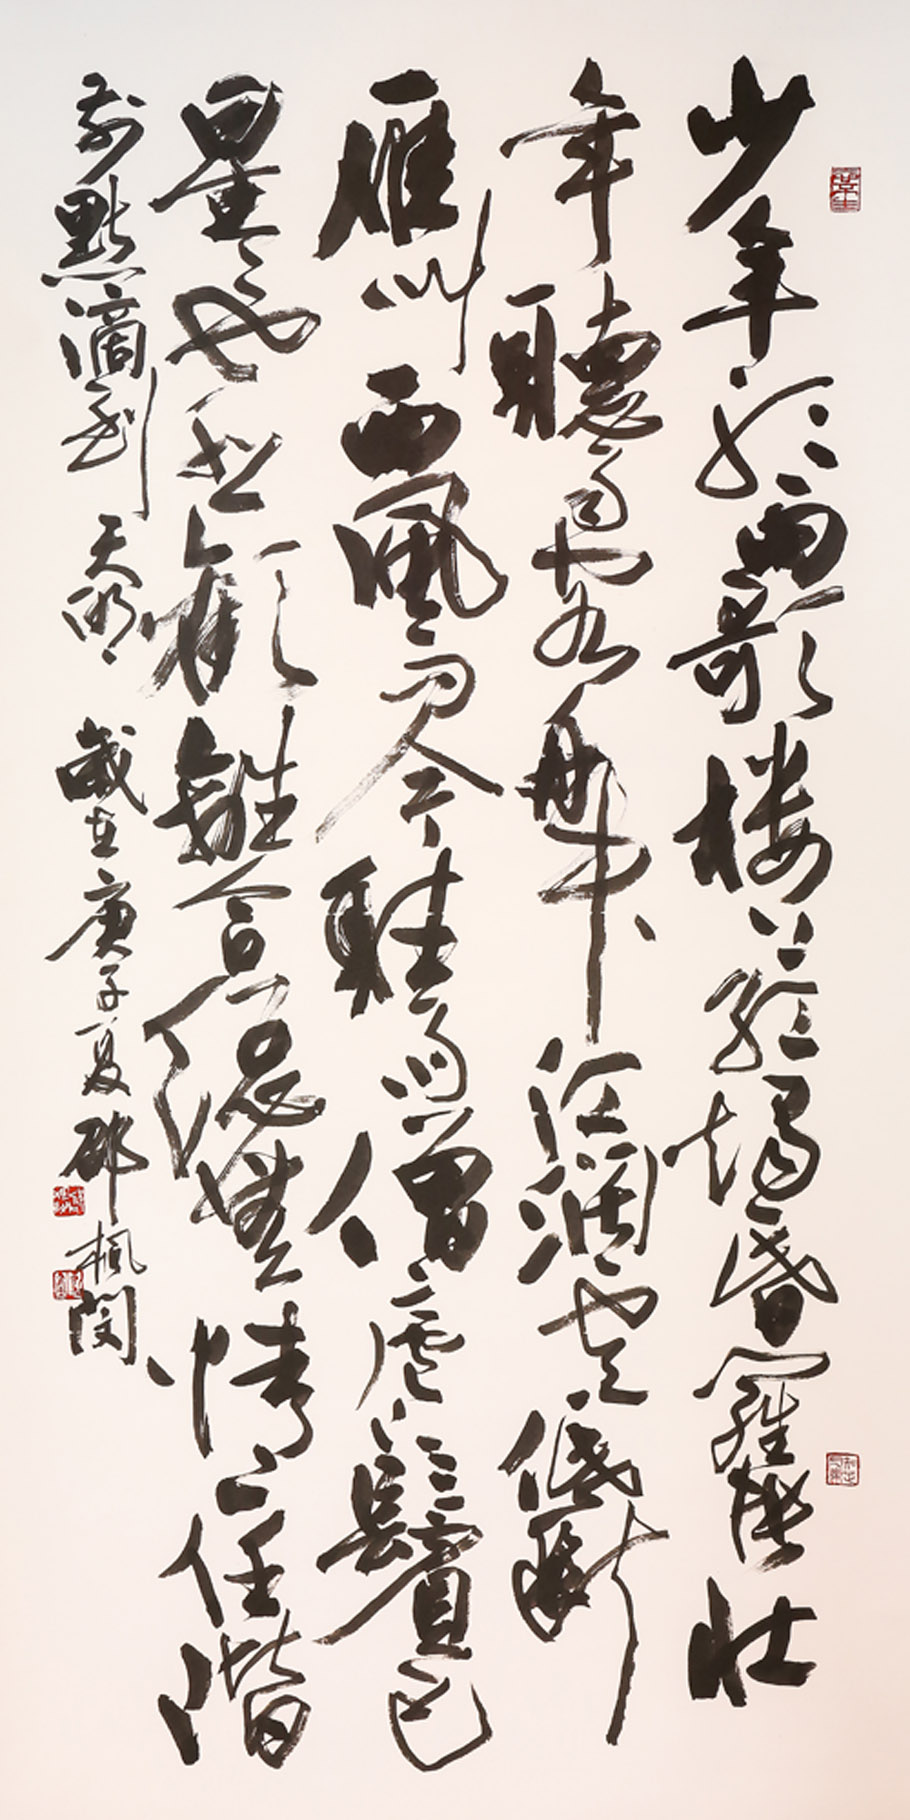 少年聽雨歌楼上紅燭昏羅帳壮
年聽雨客舟中江濶雲低断
雁叫西風而今聽雨僧廬下鬢已
星星也悲歡離合總無情一任階
前點滴到天明 歲在庚子夏邵楓閔